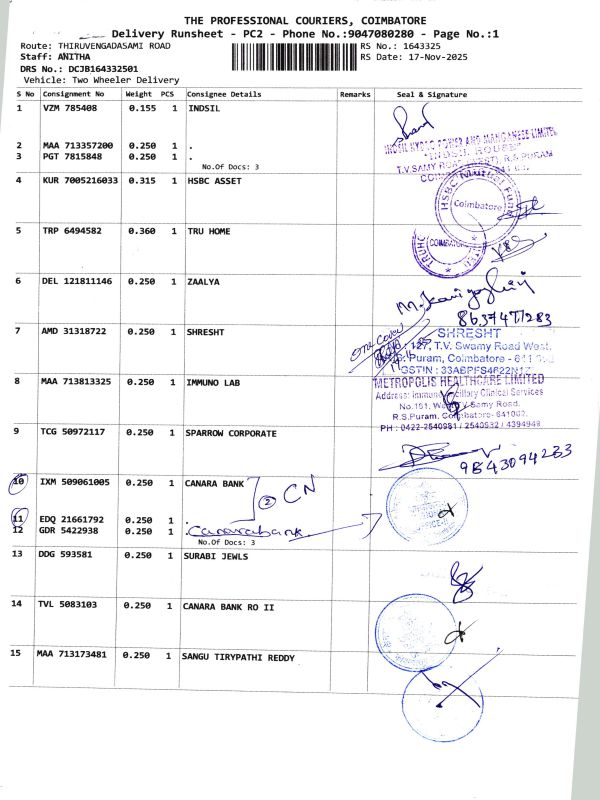 THE PROFESSIONAL COURIERS, COIMBATORE
Delivery Runsheet - PC2 - Phone No.:9047080280 - Page No.:1
Route: THIRUVENGADASAMI ROAD
RS No.: 1643325
Staff: ANITHA
RS Date: 17-Nov-2025
DRS No.: DCJB164332501
Vehicle: Two Wheeler Delivery
S No Consignment No Weight PCS Consignee Details Remarks Seal & Signature
1 VZM 785408 0.155 1 INDSIL
2 MAA 713357200 0.250 1 .
3 PGT 7815848 0.250 1 .
No.Of Docs: 3
INDSIL HYDRO POWER AND MANGANESE LIMITED
"INDSIL HOUSE"
T.V.SAMY ROAD (WEST), R.S.PURAM
4 KUR 7005216033 0.315 1 HSBC ASSET
HSBC Mutual Fund
Coimbatore
5 TRP 6494582 0.360 1 TRU HOME
COIMBATORE
6 DEL 121811146 0.250 1 ZAALYA
8637477283
7 AMD 31318722 0.250 1 SHRESHT
one cover
SHRESHT
127, T.V. Swamy Road West,
Puram, Coimbatore - 641
GSTIN : 33ABPFS4822N1Z
8 MAA 713813325 0.250 1 IMMUNO LAB
METROPOLIS HEALTHCARE LIMITED
Address: Immuno Ancillary Clinical Services
No.191, West TV Samy Road,
R.S.Puram, Coimbatore- 641002.
PH : 0422-2540981 / 2540932 / 4394949
9 TCG 50972117 0.250 1 SPARROW CORPORATE
9843094233
10 IXM 509061005 0.250 1 CANARA BANK
2 CN
11 EDQ 21661792 0.250 1 .
12 GDR 5422938 0.250 1 . Canarabank
No.Of Docs: 3
13 DDG 593581 0.250 1 SURABI JEWLS
14 TVL 5083103 0.250 1 CANARA BANK RO II
15 MAA 713173481 0.250 1 SANGU TIRYPATHI REDDY